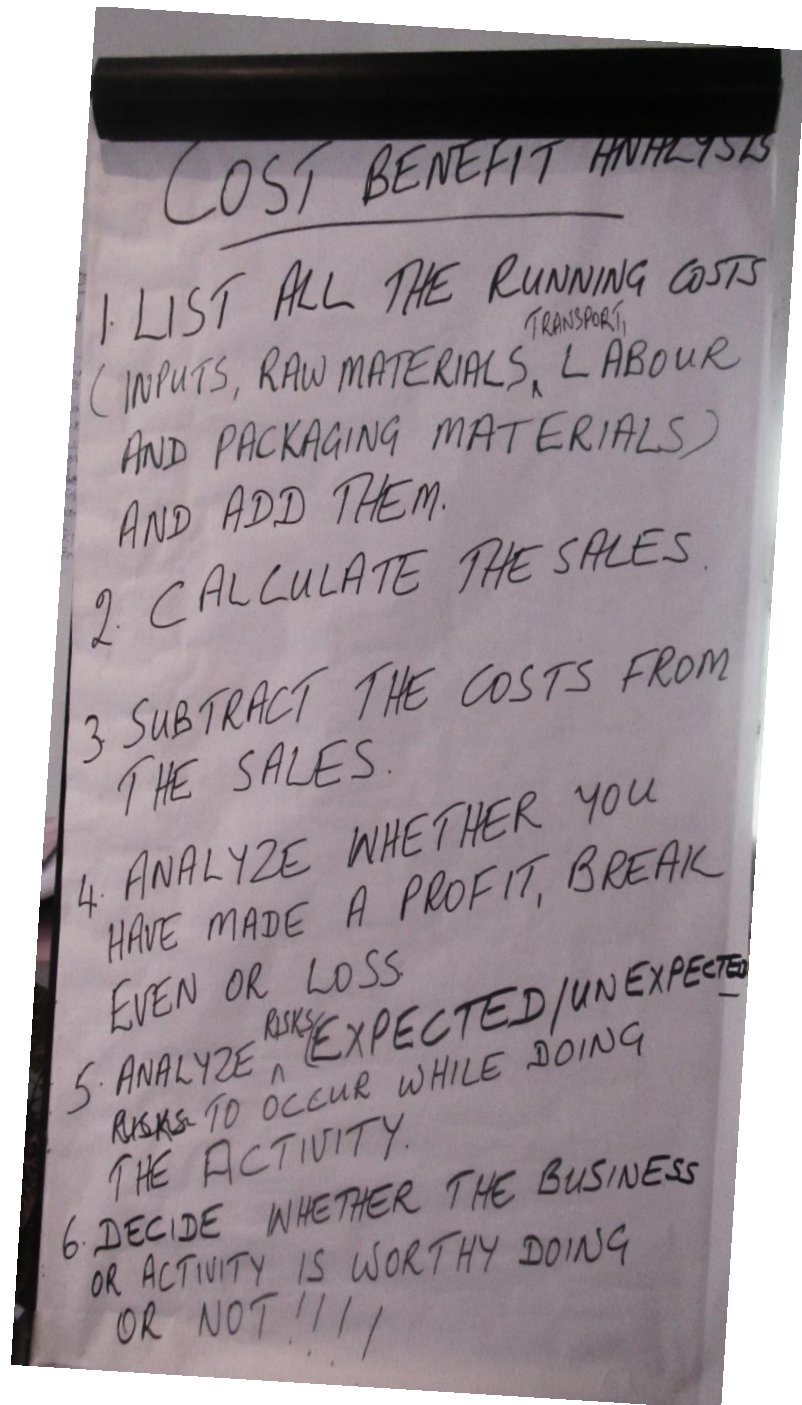 COST BENEFIT ANALYSIS
1. LIST ALL THE RUNNING COSTS
(INPUTS, RAW MATERIALS, TRANSPORT, LABOUR
AND PACKAGING MATERIALS)
AND ADD THEM.
2. CALCULATE THE SALES.
3 SUBTRACT THE COSTS FROM
THE SALES.
4. ANALYZE WHETHER YOU
HAVE MADE A PROFIT, BREAK
EVEN OR LOSS
5. ANALYZE RISKS (EXPECTED/UNEXPECTED
RISKS TO OCCUR WHILE DOING
THE ACTIVITY.
6. DECIDE WHETHER THE BUSINESS
OR ACTIVITY IS WORTHY DOING
OR NOT!!!!